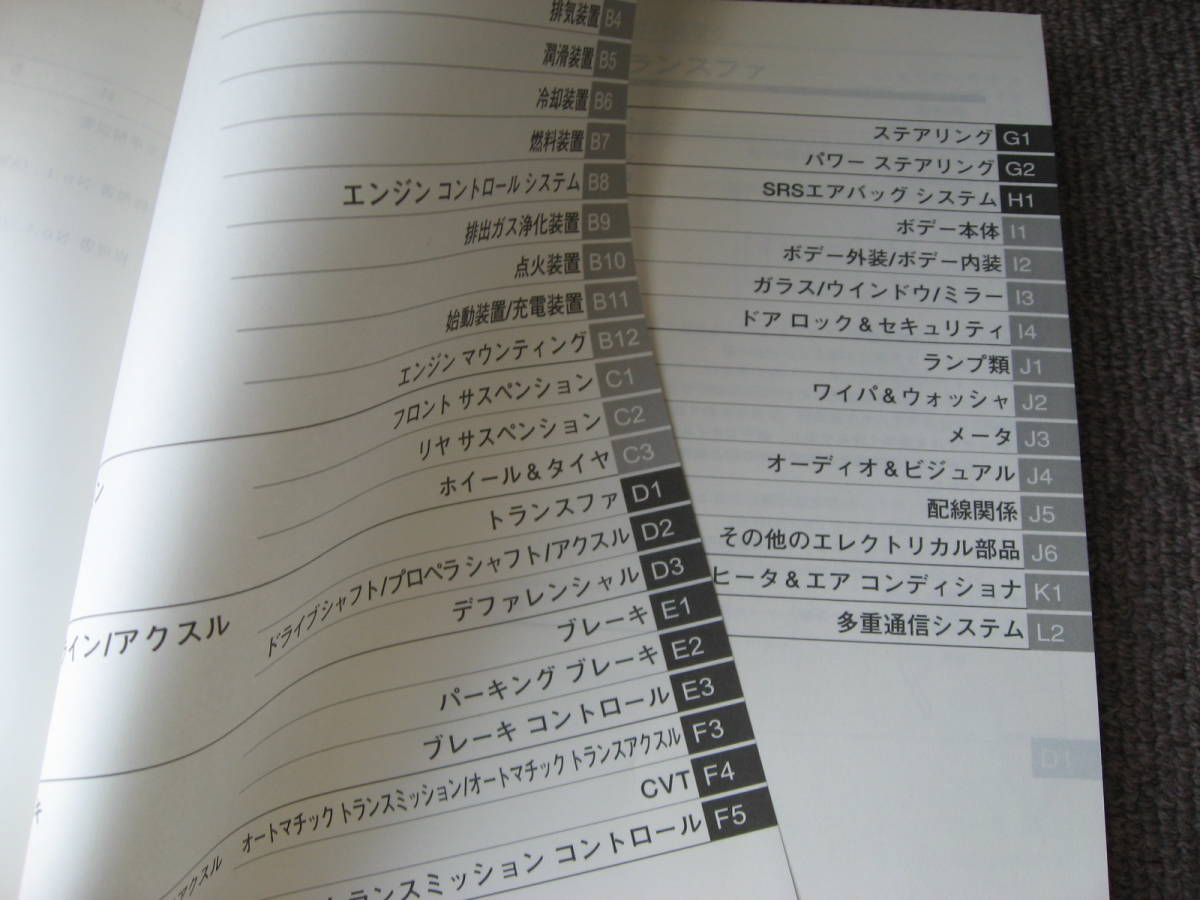 排気装置 B4
潤滑装置 B5
冷却装置 B6
燃料装置 B7
エンジン コントロール システム B8
排出ガス浄化装置 B9
点火装置 B10
始動装置/充電装置 B11
エンジン マウンティング B12
フロント サスペンション C1
リヤ サスペンション C2
ホイール＆タイヤ C3
トランスファ D1
ドライブシャフト/プロペラ シャフト/アクスル D2
デファレンシャル D3
ブレーキ E1
パーキング ブレーキ E2
ブレーキ コントロール E3
オートマチック トランスミッション/オートマチック トランスアクスル F3
CVT F4
トランスミッション コントロール F5
ン
イン/アクスル
チ
アクスル
ランスファ
ステアリング G1
パワー ステアリング G2
SRSエアバッグ システム H1
ボデー本体 I1
ボデー外装/ボデー内装 I2
ガラス/ウインドウ/ミラー I3
ドア ロック＆セキュリティ I4
ランプ類 J1
ワイパ＆ウォッシャ J2
メータ J3
オーディオ＆ビジュアル J4
配線関係 J5
その他のエレクトリカル部品 J6
ヒータ＆エア コンディショナ K1
多重通信システム L2
D1